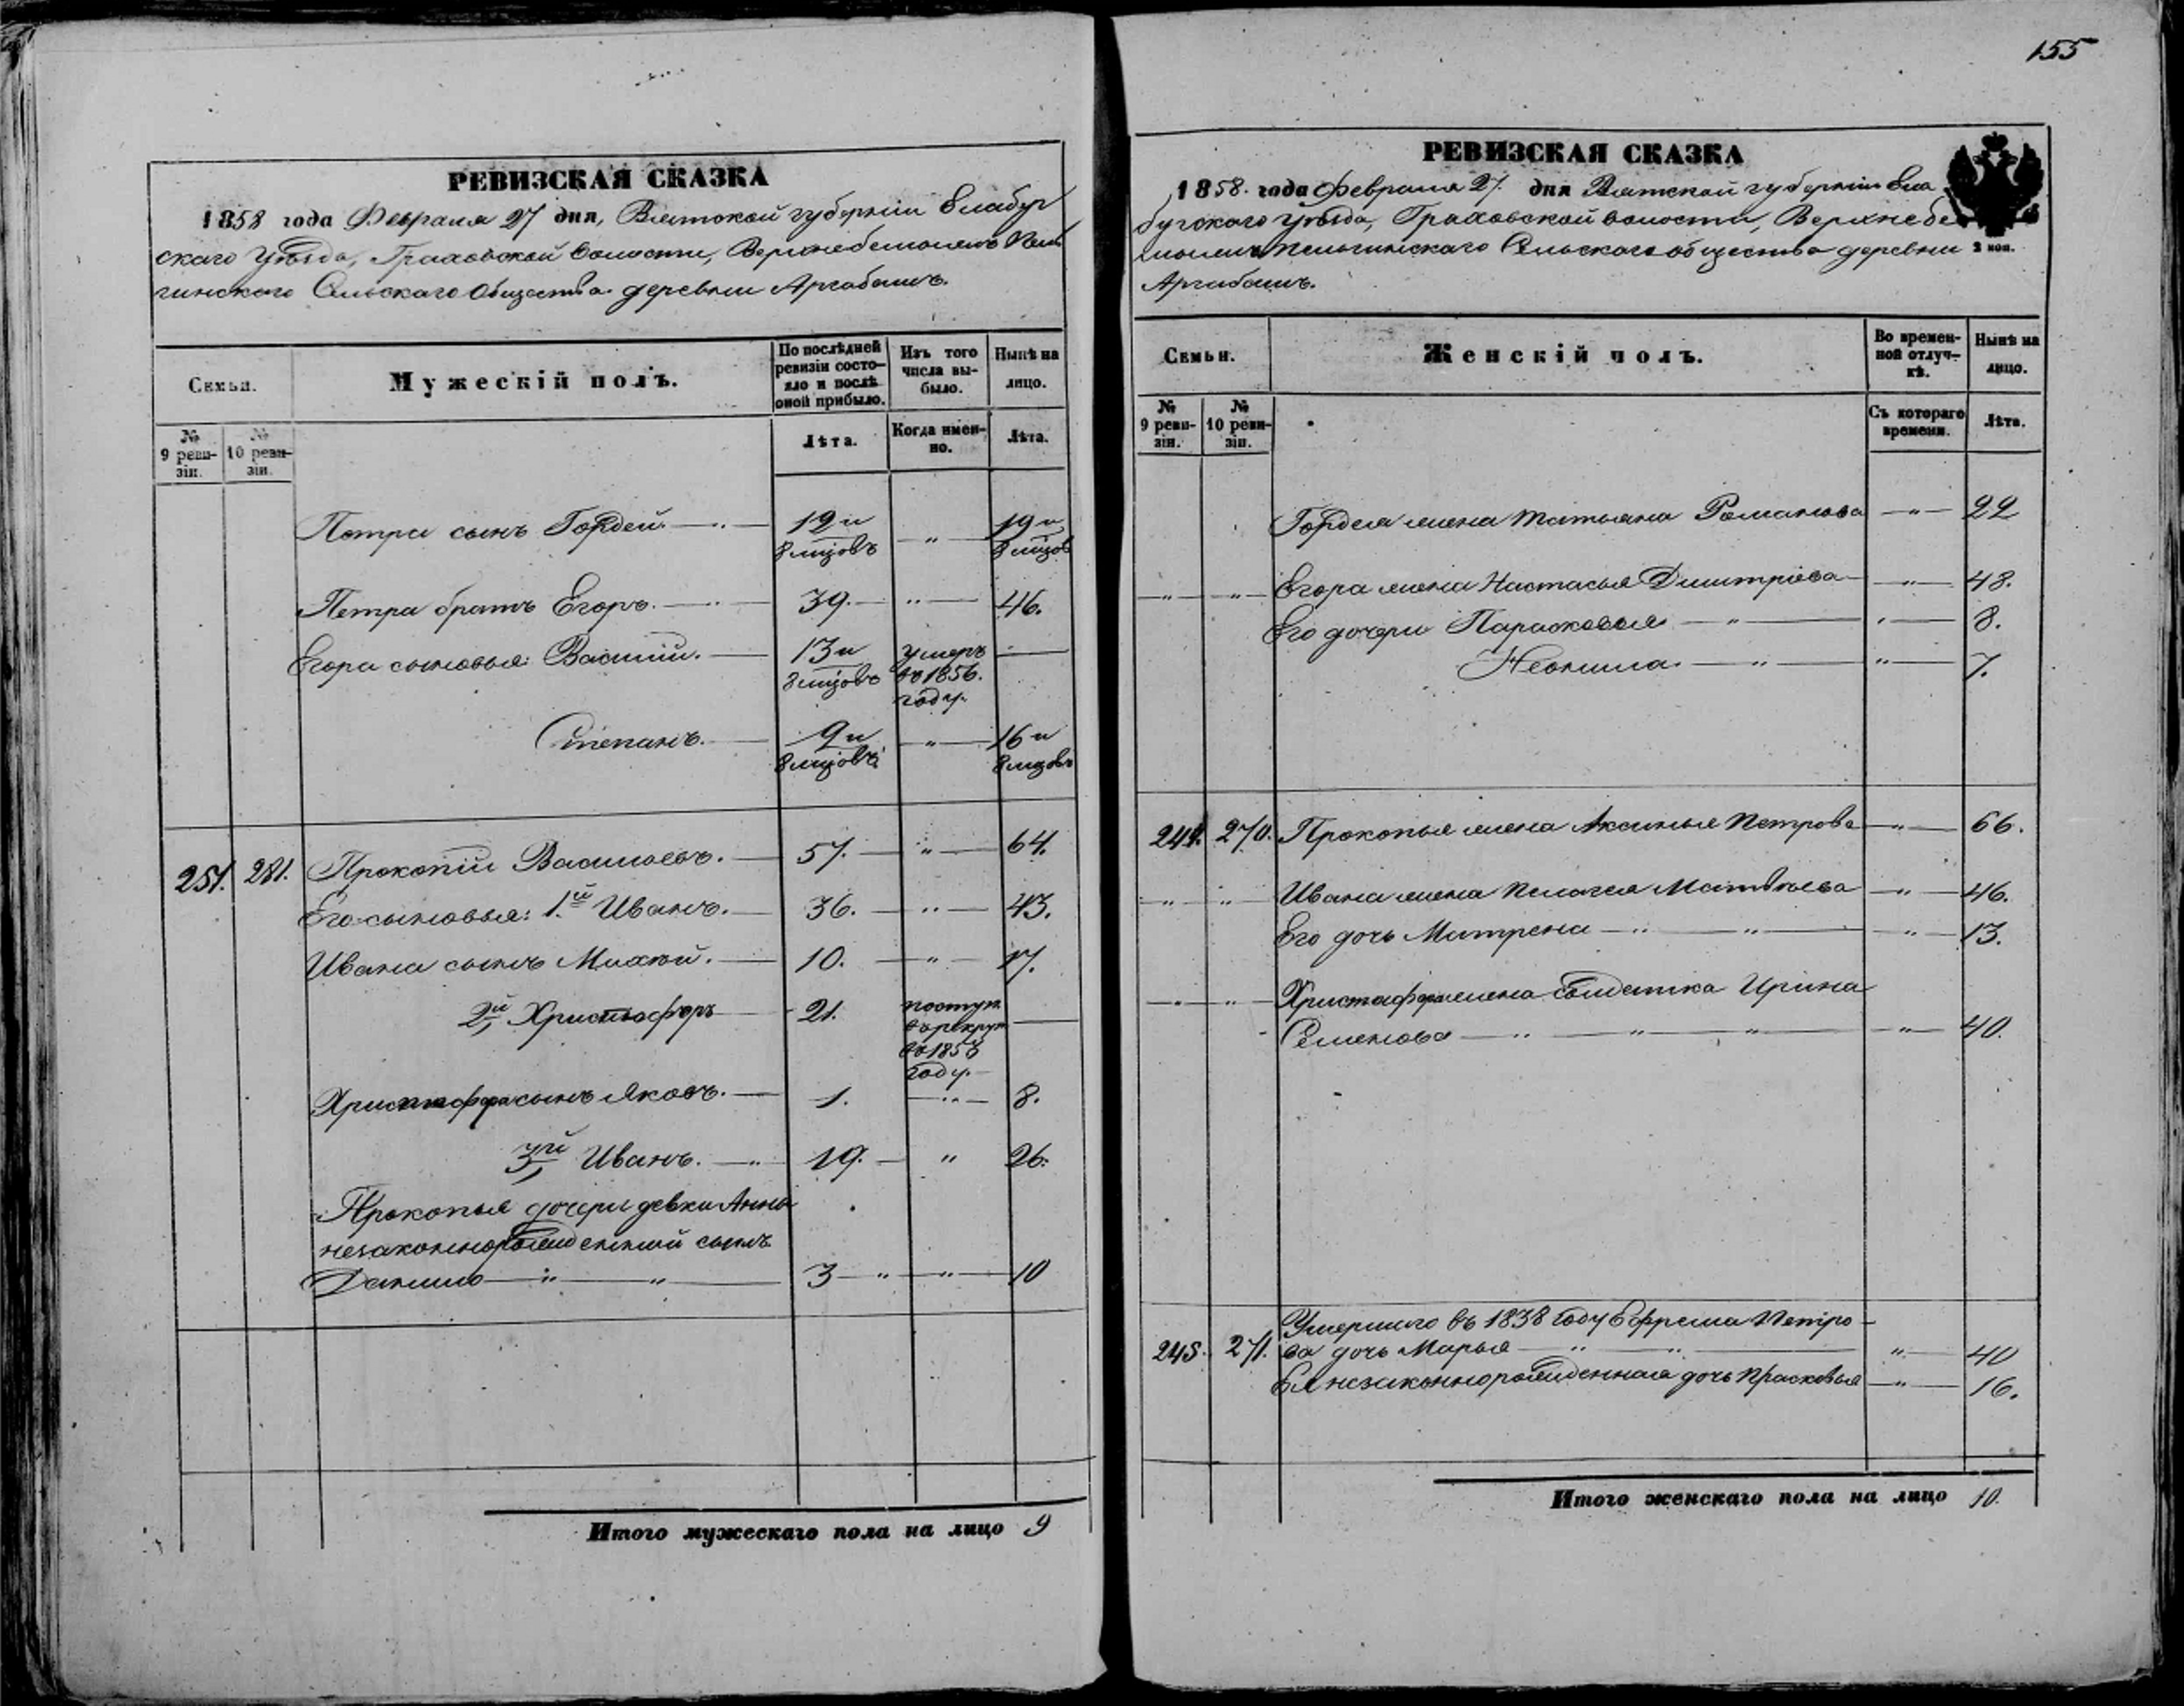 155
РЕВИЗСКАЯ СКАЗКА
1858 года Февраля 27 дня, Вятской губерніи Елабуг
скаго Уѣзда, Граховской волости, Верхнебемыжъ Пель
гинскаго Сельскаго Общества деревни Аргабашъ.
Семьи.
Мужескій полъ.
По послѣдней
ревизіи состо-
яло и послѣ
оной прибыло.
Изъ того
числа вы-
было.
Нынѣ на
лицо.
№
9 реви-
зіи.
№
10 реви-
зіи.
Лѣта.
Когда имен-
но.
Лѣта.
Петра сынъ Гордей. 12 и 8 мцовъ " 19 и 8 мцов
Петра братъ Егоръ. 39. " 46.
Егора сыновья: Василій. 13 и 8 мцовъ умеръ въ 1856. году.
Степанъ. 9 и 8 мцовъ " 16 и 8 мцовъ
251. 281. Прокопій Васильевъ. 57. " 64.
Его сыновья: 1.й Иванъ. 36. " 43.
Ивана сынъ Михей. 10. " 17.
2й Христофоръ 21. поступ. в рекрут въ 1853 году.
Христофора сынъ Яковъ. 1. " 8.
3й Иванъ. " 19. " 26.
Прокопья дочери девки Анны
незаконнорожденный сынъ
Данило " " 3 " " 10
Итого мужескаго пола на лицо 9
РЕВИЗСКАЯ СКАЗКА
1858. года Февраля 27. дня Вятской губерніи Ела
бугскаго Уѣзда, Граховской волости, Верхнебе
Пельгинскаго Сельскаго общества деревни
2 коп.
Аргабашъ.
Семьи.
Женскій полъ.
Во времен-
ной отлуч-
кѣ.
Нынѣ на
лицо.
№
9 реви-
зіи.
№
10 реви-
зіи.
Съ котораго
времени.
Лѣта.
Гордея жена Татьяна Романова " 22
" " Егора жена Настасья Димитріева " 48.
Его дочери Парасковья " " 8.
Неонила. " " 7.
244. 270. Прокопья жена Аксинья Петрова " 66.
" " Ивана жена Пелагея Матвѣева " 46.
Его дочь Матрена " " " 13.
" " Христофора жена солдатка Ирина
Семенова " " " " 40.
Умершаго въ 1838 году Ефрема Петро-
245. 271. ва дочь Марья " " " 40
Ея незаконнорожденная дочь Прасковья " 16.
Итого женскаго пола на лицо 10.